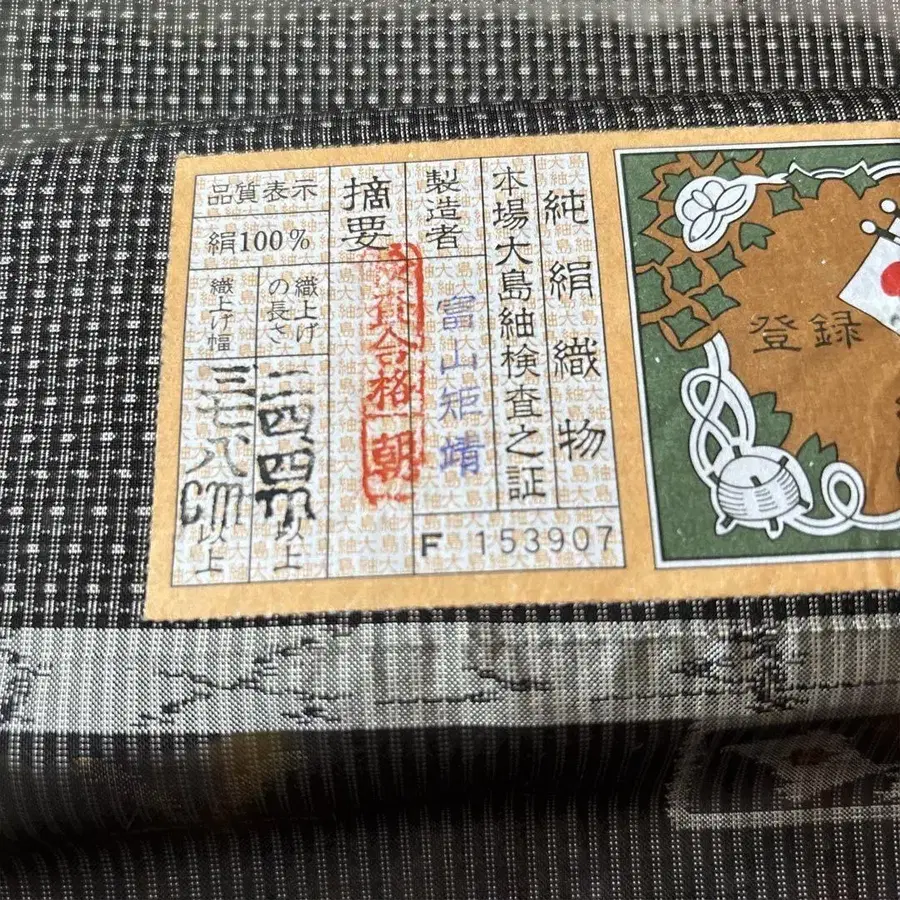 純絹織物
本場大島紬検査之証
製造者
富山矩靖
F 153907
摘要
検査合格
朝
品質表示
絹100%
織上げの長さ
一四、四m以上
織上げ幅
三七、八cm以上
登録